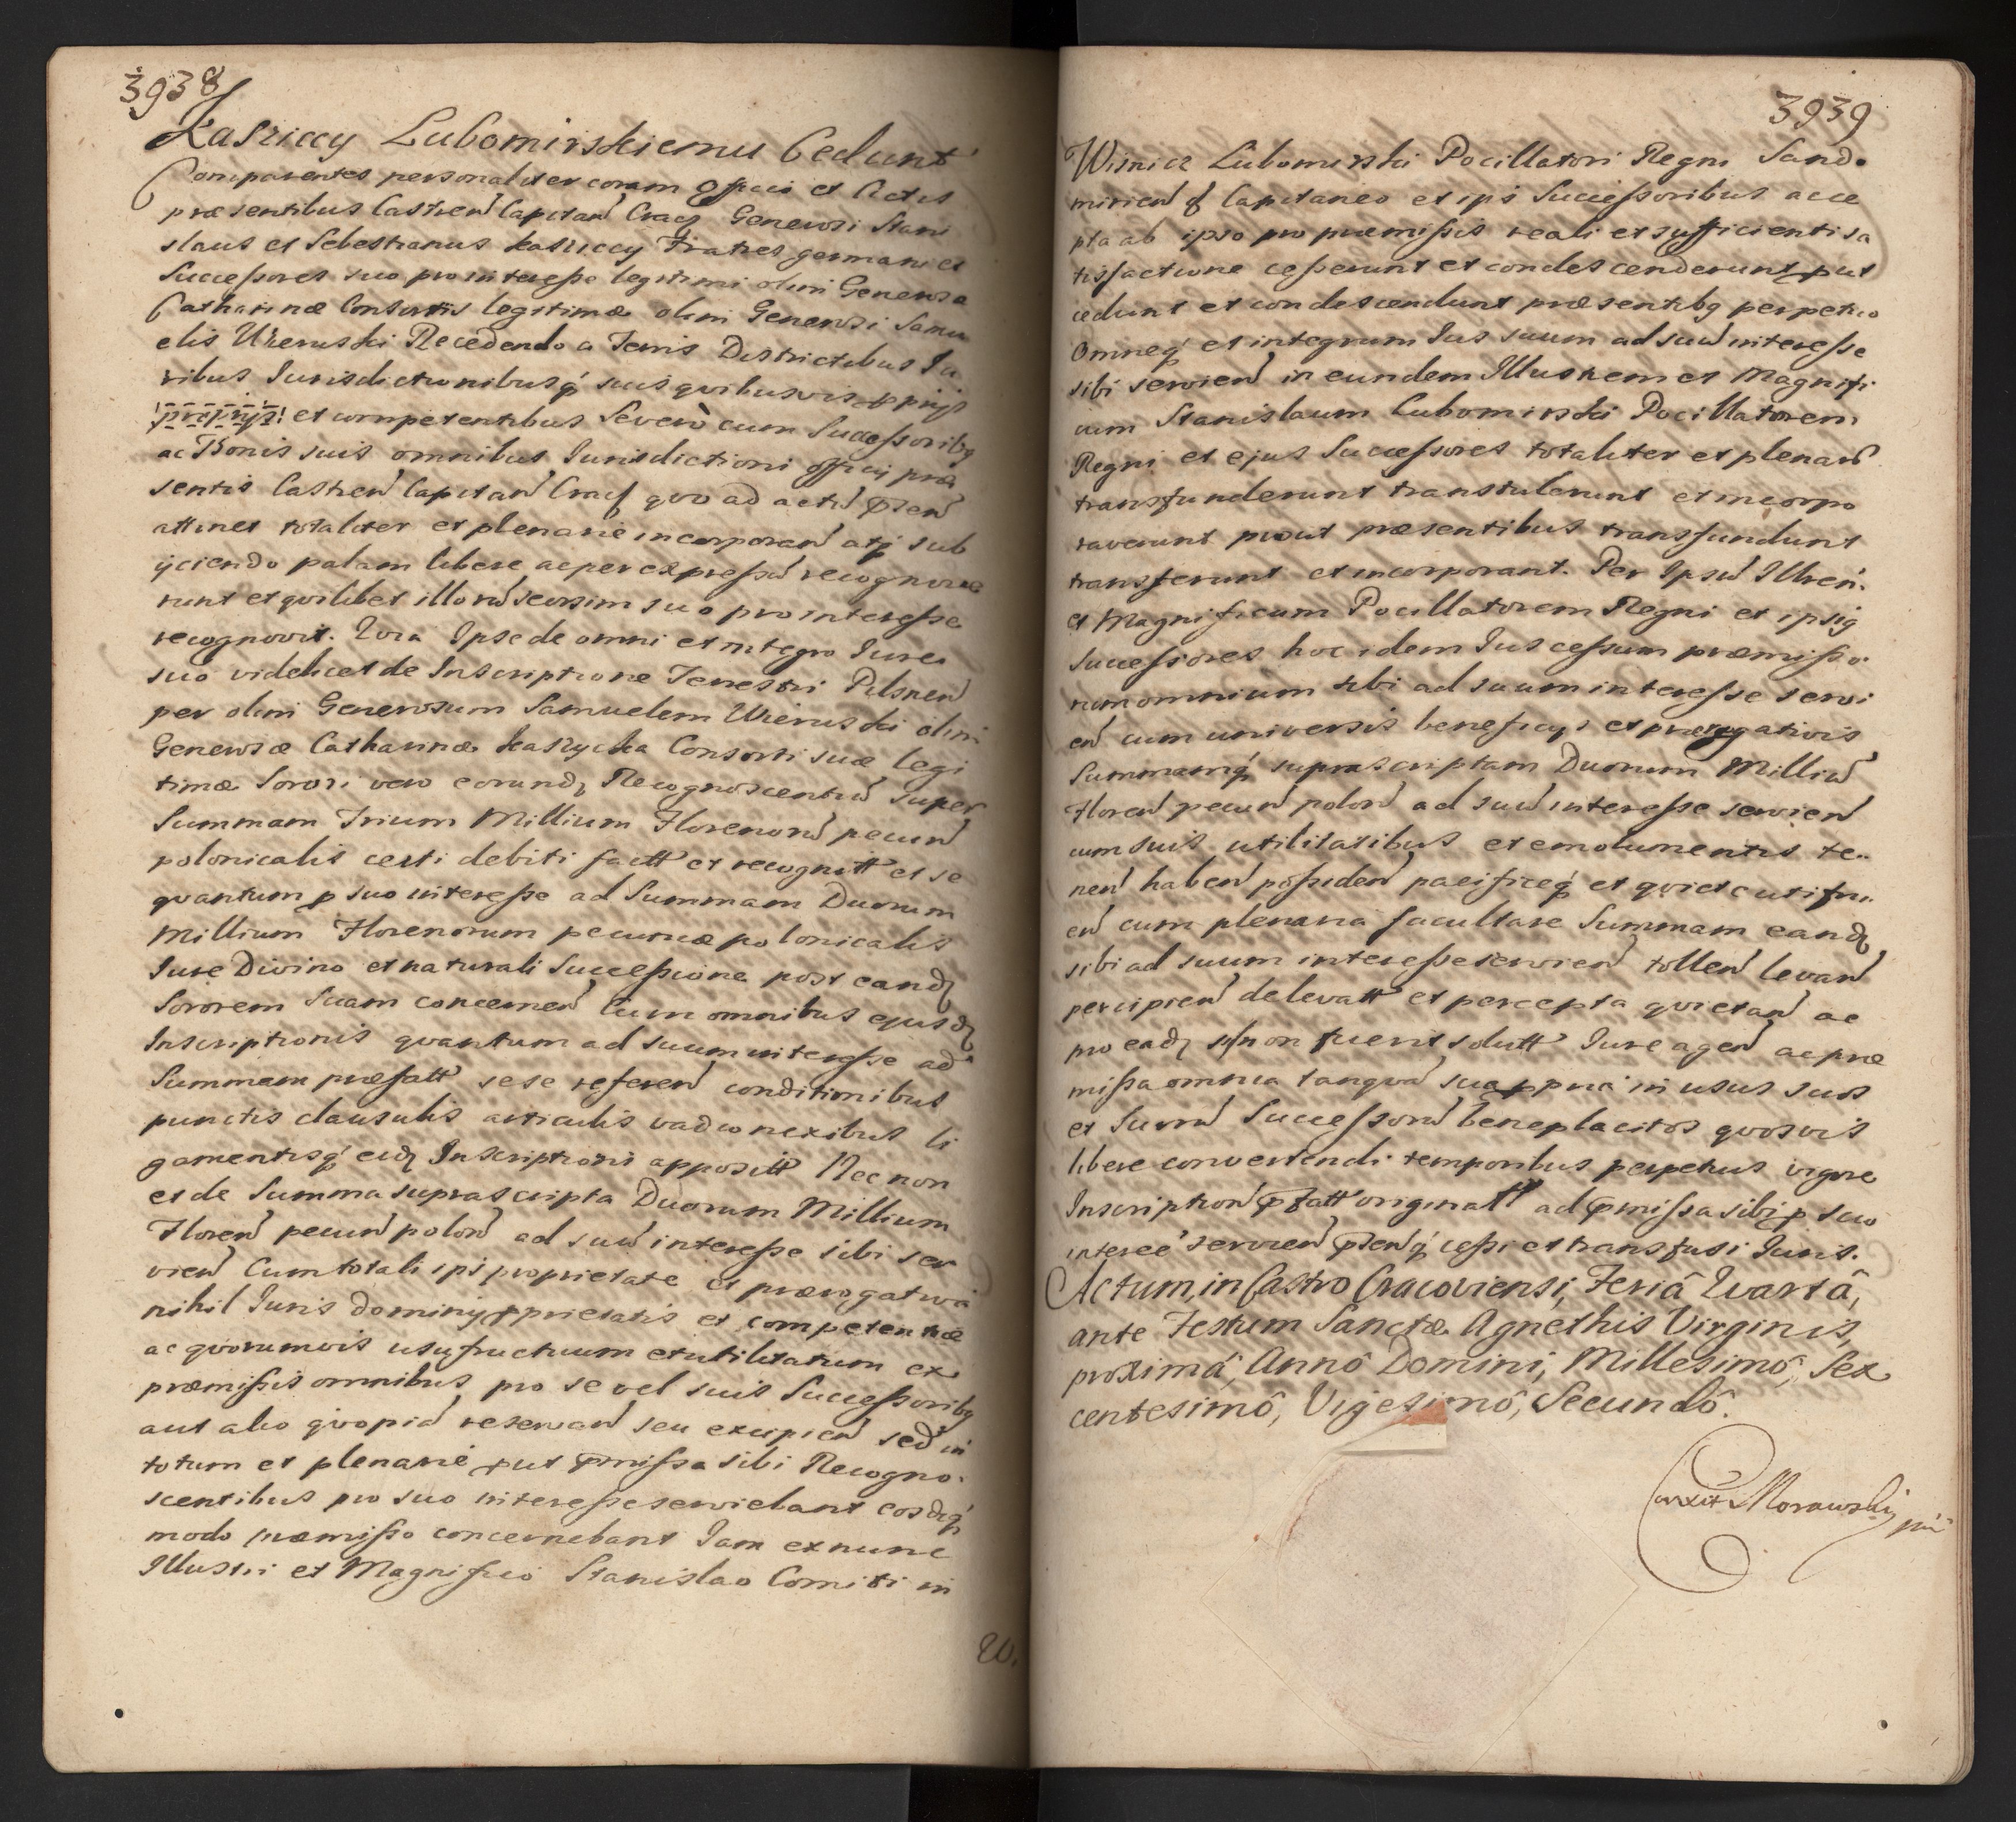 3938
Kasziccy Lubomirskiemu Cedunt
Comparentes personaliter coram Officio et Actis
præsentibus Castren Capitan Crac Generosi Stani
slaus et Sebestianus Kasziccy Fratres germani et
Successores suo pro interesse legitimi olim Generosa
Catharinæ Consortis legitimæ olim Generosi Samu
elis Wieruski Recedendo a Terris Districtibus Iu
ribus Iurisdictionibusq suis quibusvis pprijs
proprijs et competentibus Severò cum Successoribq
ac Bonis suis omnibus Iurisdictioni officij præ
sentis Castren Capitan Crac quo ad actu pñen
attinet totaliter et plenarie incorporan atq sub
ijciendo palam libere ac per expressu recognove
runt et quilibet illoru seorsim suo pro interesse
recognovit. Quia Ipse de omni et integro Iure
suo videlicet de Inscriptione Terrestri Pilsnen
per olim Generosum Samuelem Wieruski olim
Generosæ Catharinæ Kaszycka Consorti suæ legi
timæ Sorori vero eorund Recognoscentiu super
Summam Trium Millium Florenoru pecun
polonicalis certi debiti factt et recognitt et se
quantum p suo interesse ad Summam Duorum
Millium Florenorum pecuniæ polonicalis
Iure Divino et naturali Successione post eand
Sororem Suam concernen Cum omnibus ejusd
Inscriptionis quantum ad suum interesse ad
Summam præfatt sese referen conditionibus
punctis clausulis articulis vadio nexibus li
gamentisq eid Inscriptioni apposit Nec non
et de Summa suprascripta Duorum Millium
Floren pecun polon ad suu interesse sibi ser
vien Cum totali ipi proprietate et prærogativa
nihil Iuris Dominij pprietatis et competentiæ
ac quorumvis usufructuum et utilitatum ex
præmissis omnibus pro se vel suis Successoribq
aut alio quopia reservan seu excipien sed in
totum et plenarie put pmissa sibi Recogno
scentibus pro suo interesse serviebant eosdq
modo præmisso concernebant Iam ex nunc
Illustri et Magnifico Stanislao Comiti in
20.
3939
Wisnicz Lubomirski Pocillatori Regni Sando
mirien Capitaneo et ipi Successoribus acce
pta ab ipso pro præmissis reali et sufficienti sa
tisfactione cesserunt et condescenderunt put
cedunt et condescendunt præsentibq perpetuo
Omneq et integrum Ius suum ad suu interesse
sibi servien in eundem Illustrem et Magnifi
cum Stanislaum Lubomirski Pocillatorem
Regni et ejus Successores totaliter et plenari
transfunderunt transtulerunt et incorpo
raverunt prout præsentibus transfundunt
transferunt et incorporant. Per Ipsu Illren.
et Magnificum Pocillatorem Regni et ipsiq
Successores hoc idem Ius cessum præmisso
rum omnium sibi ad suum interesse servi
en cum universis beneficijs et prærogativis
Summamq suprascriptam Duorum Milliu
Floren pecun polon ad suu interesse servien
cum suis utilitatibus et emolumentis te
nen haben possiden pacificeq et quiete uti fru
en cum plenaria facultate Summam eand
sibi ad suum interesse servien tollen levan
percipien de levatt et percepta quietan ac
pro ead si non fuerit solutt Iure agen ac præ
missa omnia tanqua sua ppria in usus suos
et Suoru Successoru beneplacitos quosvis
libere convertendi temporibus perpetuis vigore
Inscription pfatt originatt ad pmissa sibi p suo
interee servien pñenq cessi et transfusi Iuris.
Actum, in Castro Cracoviensi, Feriâ Quartâ,
ante Festum Sanctæ Agnethis Virginis,
proximâ, Annô Domini, Millesimô, Sex
centesimô, Vigesimô, Secundô.
Morawski